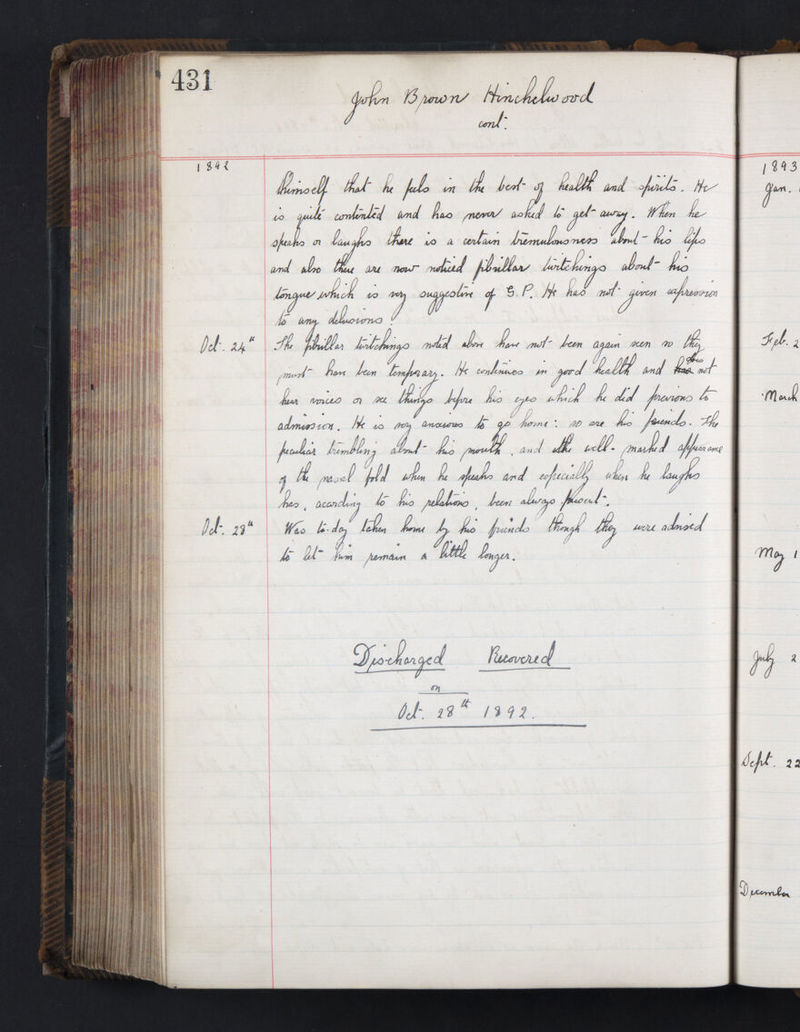 431
John Brown Hinchelwood
cont.
1892
himself that he feels in the best of health and spirits. He
is quite contented and has never asked to get away. When he
speaks or laughs there is a certain tremulousness about his lips
and also there are now noticed fibrillar twitchings about his
tongue which is very suggestive of G.P. He has not given expression
to any delusions.
Oct. 24th The fibrillar twitchings noted above have not been again seen so they
must have been temporary. He continues in good health and does not
hear voices or see things before his eyes which he did previous to
admission. He is very anxious to go home: so are his friends. The
peculiar trembling about his mouth, and the well-marked appearance
of the nasal fold when he speaks and especially when he laughs
has, according to his relations, been always present.
Oct. 28th Was to-day taken home by his friends though they were advised
to let him remain a little longer.
Discharged Recovered
on
Oct. 28th 1892.
1893
Jan.
Feb. 2
March
May 1
July 2
Sept. 22
December